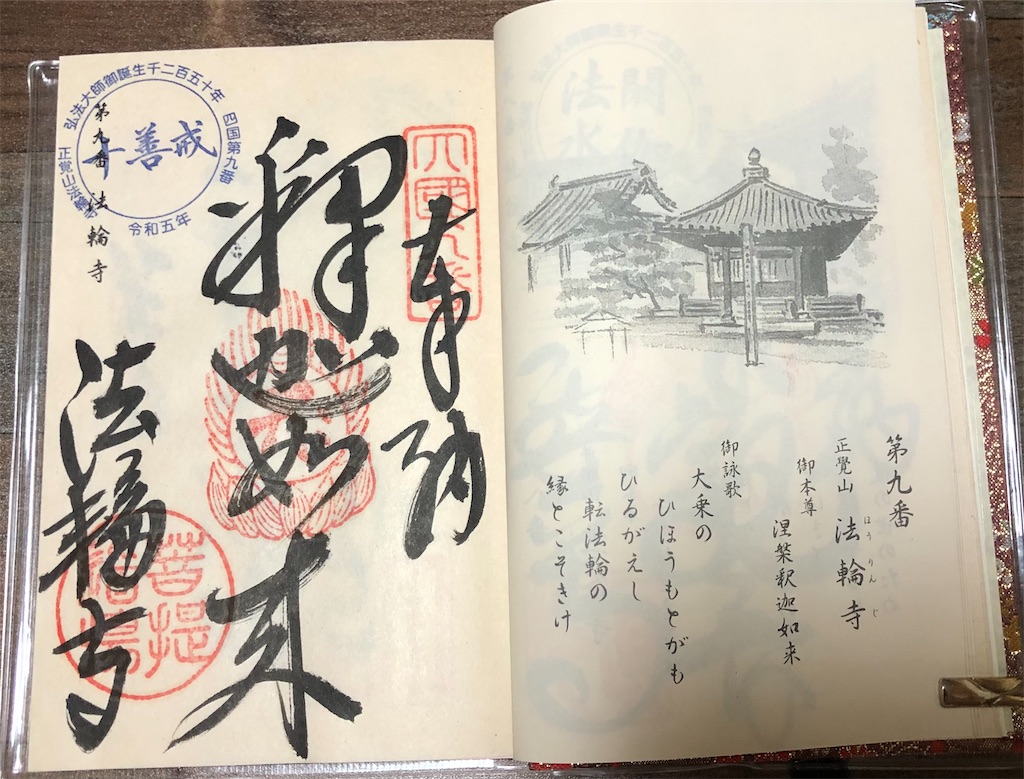 第九番
正覺山 法輪寺
ほうりんじ
御本尊 涅槃釈迦如来
御詠歌
大乗の
ひほうもとがも
ひるがえし
転法輪の
縁とこそきけ
四國九番
奉納
釋迦如来
法輪寺
菩提
第九番 法輪寺
弘法大師御誕生千二百五十年
四国第九番
十善戒
正覺山法輪寺
令和五年